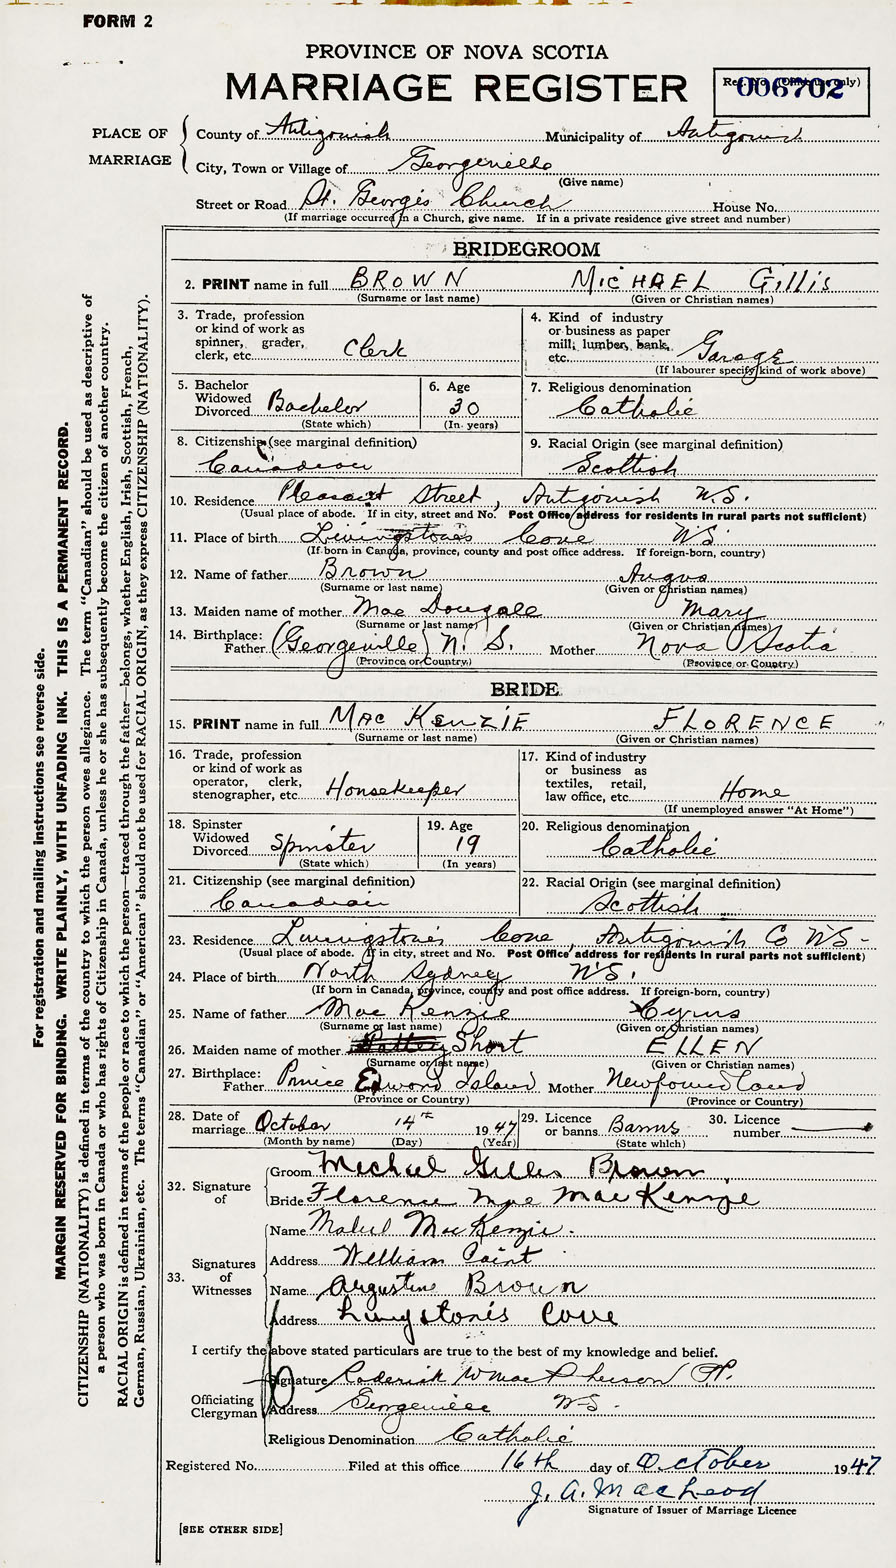 FORM 2
PROVINCE OF NOVA SCOTIA
MARRIAGE REGISTER
Reg. No. (Office use only)
006702
PLACE OF MARRIAGE
County of Antigonish Municipality of Antigonish
City, Town or Village of Georgeville
(Give name)
Street or Road St. Georges Church House No.
(If marriage occurred in a Church, give name. If in a private residence give street and number)
BRIDEGROOM
2. PRINT name in full BROWN MICHAEL Gillis
(Surname or last name) (Given or Christian names)
3. Trade, profession or kind of work as spinner, grader, clerk, etc. Clerk
4. Kind of industry or business as paper mill, lumber, bank, etc. Garage
(If labourer specify kind of work above)
5. Bachelor Widowed Divorced Bachelor
(State which)
6. Age 30
(In years)
7. Religious denomination
Catholic
8. Citizenship (see marginal definition)
Canadian
9. Racial Origin (see marginal definition)
Scottish
10. Residence Pleasant Street, Antigonish N.S.
(Usual place of abode. If in city, street and No. Post Office address for residents in rural parts not sufficient)
11. Place of birth Livingstone's Cove N.S.
(If born in Canada, province, county and post office address. If foreign-born, country)
12. Name of father Brown Angus
(Surname or last name) (Given or Christian names)
13. Maiden name of mother Mac Dougall Mary
(Surname or last name) (Given or Christian names)
14. Birthplace:
Father (Georgeville) N. S. Mother Nova Scotia
(Province or Country) (Province or Country)
BRIDE
15. PRINT name in full MAC KENZIE FLORENCE
(Surname or last name) (Given or Christian names)
16. Trade, profession or kind of work as operator, clerk, stenographer, etc. Housekeeper
17. Kind of industry or business as textiles, retail, law office, etc. Home
(If unemployed answer "At Home")
18. Spinster Widowed Divorced Spinster
(State which)
19. Age 19
(In years)
20. Religious denomination
Catholic
21. Citizenship (see marginal definition)
Canadian
22. Racial Origin (see marginal definition)
Scottish
23. Residence Livingstone's Cove, Antigonish Co N.S.
(Usual place of abode. If in city, street and No. Post Office address for residents in rural parts not sufficient)
24. Place of birth North Sydney N.S.
(If born in Canada, province, county and post office address. If foreign-born, country)
25. Name of father Mac Kenzie Cyrus
(Surname or last name) (Given or Christian names)
26. Maiden name of mother Short ELLEN
(Surname or last name) (Given or Christian names)
27. Birthplace:
Father Prince Edward Island Mother Newfoundland
(Province or Country) (Province or Country)
28. Date of marriage October 14th 1947
(Month by name) (Day) (Year)
29. Licence or banns Banns
(State which)
30. Licence number
32. Signature of
Groom Michael Gillis Brown
Bride Florence Mae MacKenzie
33. Signatures of Witnesses
Name Mabel MacKenzie.
Address William Point
Name Augustine Brown
Address Livingstone's Cove
I certify the above stated particulars are true to the best of my knowledge and belief.
Officiating Clergyman
Signature Roderick W MacPherson P.P.
Address Georgeville N.S.
Religious Denomination Catholic
Registered No. Filed at this office 16th day of October 1947
J. A. MacLeod
Signature of Issuer of Marriage Licence
[SEE OTHER SIDE]
For registration and mailing instructions see reverse side.
MARGIN RESERVED FOR BINDING. WRITE PLAINLY, WITH UNFADING INK. THIS IS A PERMANENT RECORD.
CITIZENSHIP (NATIONALITY) is defined in terms of the country to which the person owes allegiance. The term "Canadian" should be used as descriptive of
a person who was born in Canada or who has rights of Citizenship in Canada, unless he or she has subsequently become the citizen of another country.
RACIAL ORIGIN is defined in terms of the people or race to which the person—traced through the father—belongs, whether English, Irish, Scottish, French,
German, Russian, Ukrainian, etc. The terms "Canadian" or "American" should not be used for RACIAL ORIGIN, as they express CITIZENSHIP (NATIONALITY).